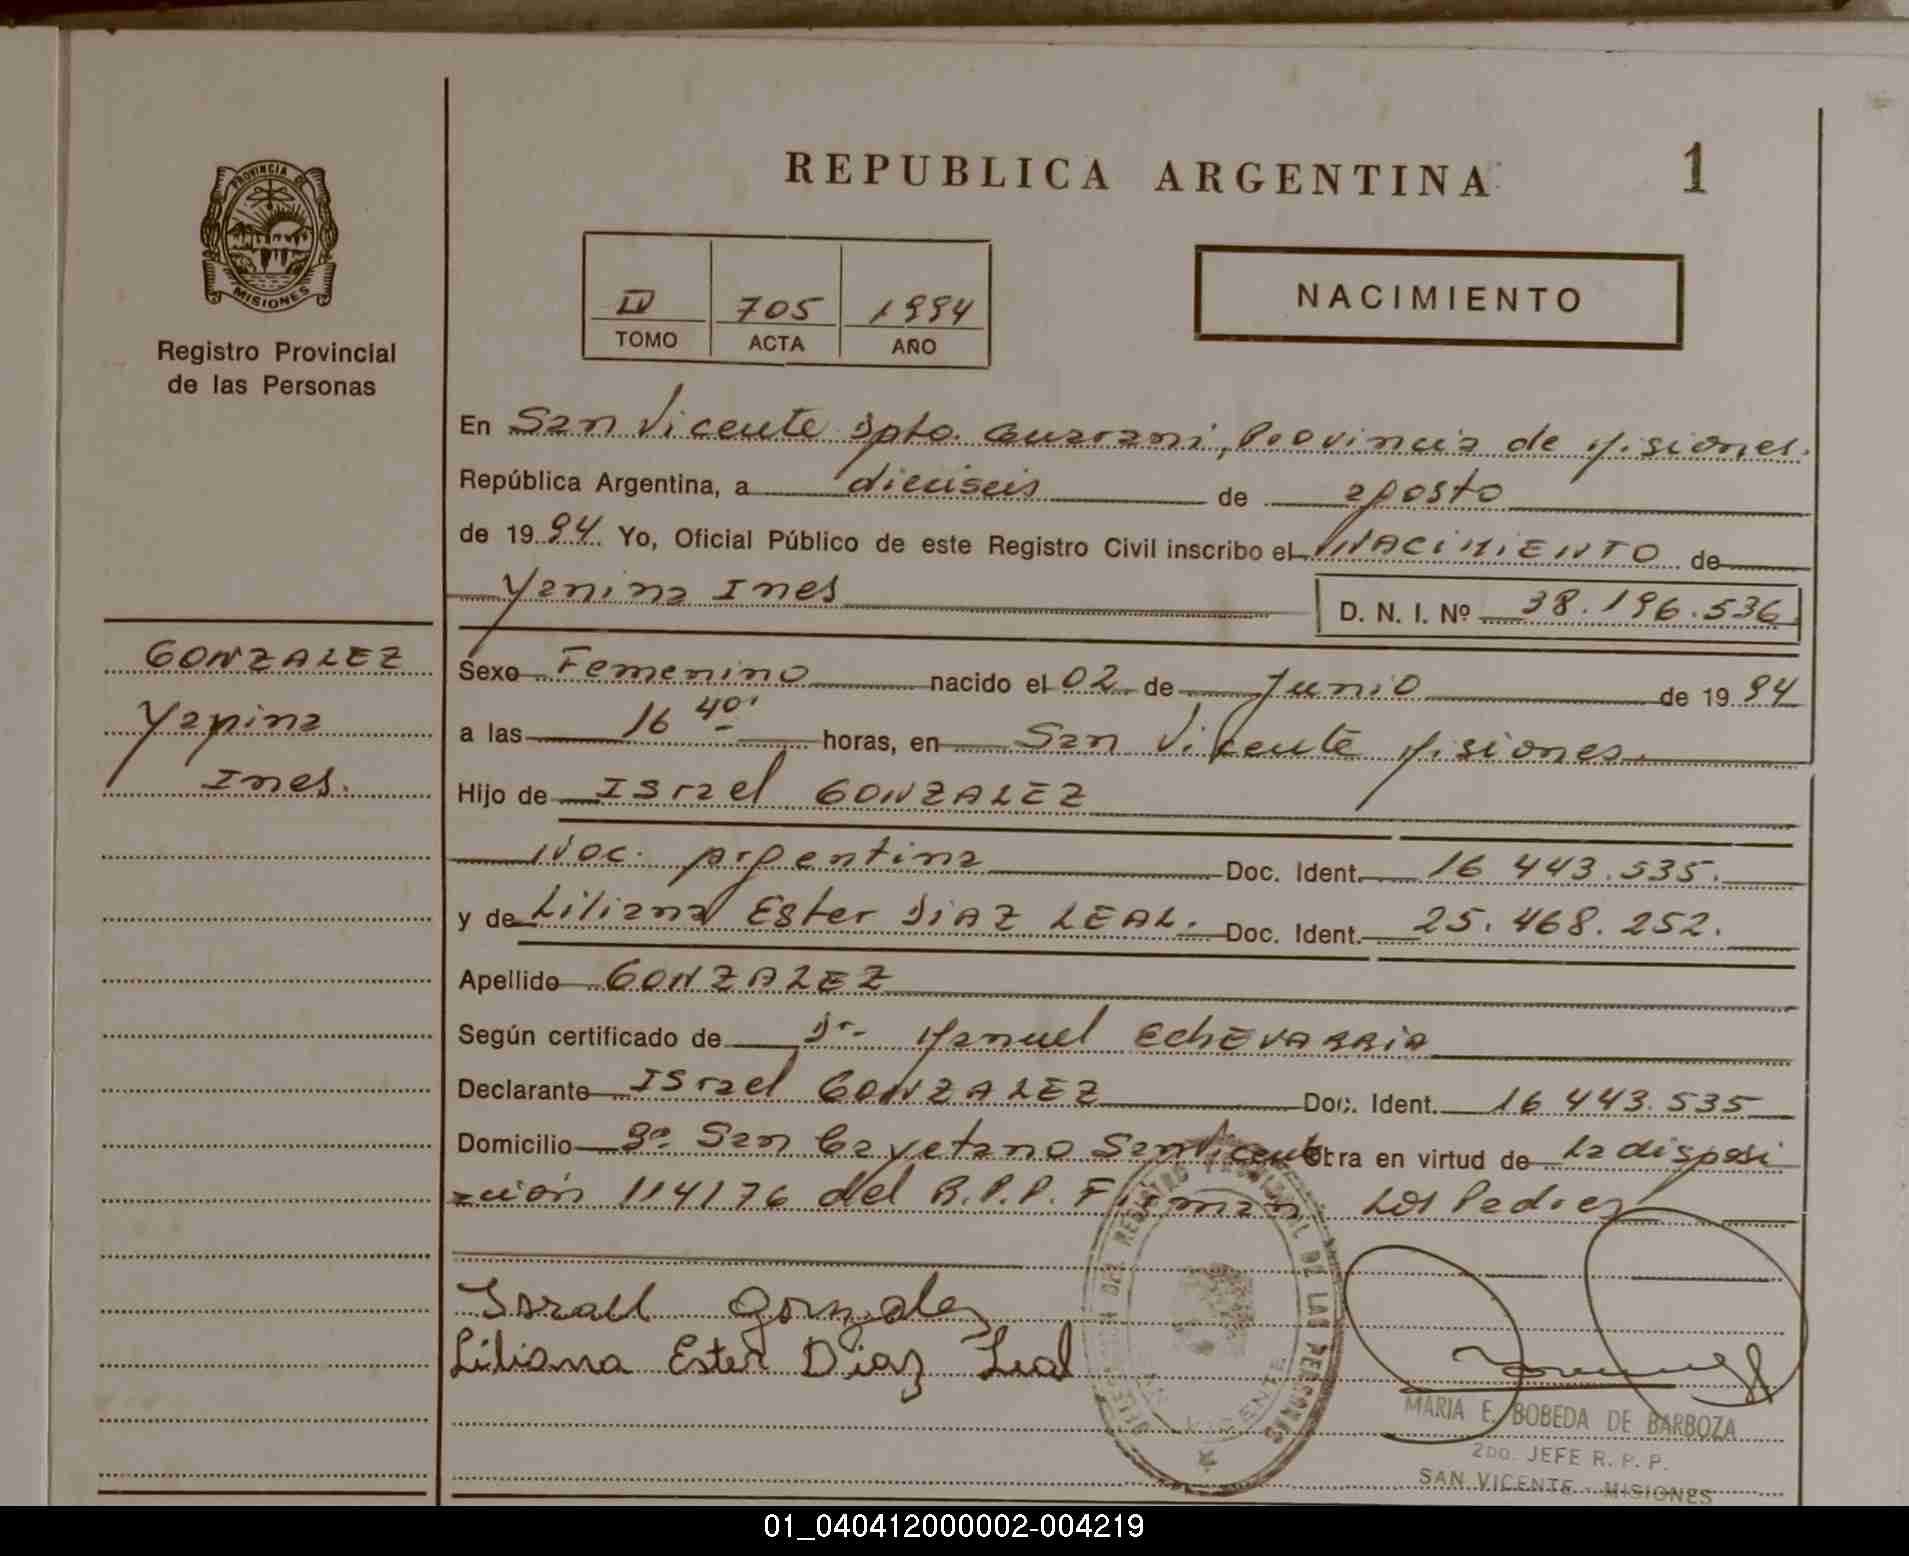 PROVINCIA DE
MISIONES
Registro Provincial
de las Personas
GONZALEZ
Yanina
Ines.
REPUBLICA ARGENTINA
1
IV 705 1994
TOMO ACTA AÑO
NACIMIENTO
En San Vicente Dpto. Guarani, Provincia de Misiones.
República Argentina, a dieciseis de agosto
de 1994 Yo, Oficial Público de este Registro Civil inscribo el NACIMIENTO de
Yanina Ines D. N. I. Nº 38.196.536
Sexo Femenino nacido el 02 de Junio de 1994
a las 16 40' horas, en San Vicente Misiones.
Hijo de ISrael GONZALEZ
Nac. Argentina Doc. Ident. 16 443.535.
y de Liliana Ester DIAZ LEAL. Doc. Ident. 25.468.252.
Apellido GONZALEZ
Según certificado de Dr. Manuel EchEVARRIA
Declarante ISrael GONZALEZ Doc. Ident. 16 443.535
Domicilio Bº San Cayetano San Vicente Obra en virtud de La disposi
ción 114176 del R.P.P. Firman Los Padres
Israel Gonzalez
Liliana Ester Diaz Leal
DEL REGISTRO PROVINCIAL DE LAS PERSONAS
VICENTE
MARIA E. BOBEDA DE BARBOZA
2DO. JEFE R. P. P.
SAN VICENTE - MISIONES
01_040412000002-004219